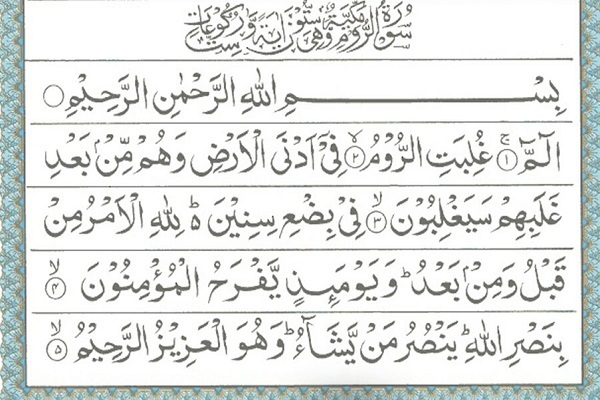 سُوْرَةُ الرُّوْمِ مَكِّيَّةٌ وَّهِىَ سِتُّوْنَ اٰيَةً وَّسِتُّ رُكُوْعَاتٍ
بِسْمِ اللّٰهِ الرَّحْمٰنِ الرَّحِيْمِ ۝
الٓمّٓ ۝١ۚ غُلِبَتِ الرُّوْمُ ۝٢ۙ فِىْٓ اَدْنَى الْاَرْضِ وَهُمْ مِّنْۢ بَعْدِ
غَلَبِهِمْ سَيَغْلِبُوْنَ ۝٣ۙ فِىْ بِضْعِ سِنِيْنَ ؕ۬ لِلّٰهِ الْاَمْرُ مِنْ
قَبْلُ وَمِنْۢ بَعْدُ ؕ وَيَوْمَئِذٍ يَّفْرَحُ الْمُؤْمِنُوْنَ ۝٤ۙ
بِنَصْرِ اللّٰهِ ؕ يَنْصُرُ مَنْ يَّشَآءُ ؕ وَهُوَ الْعَزِيْزُ الرَّحِيْمُ ۝٥ۙ